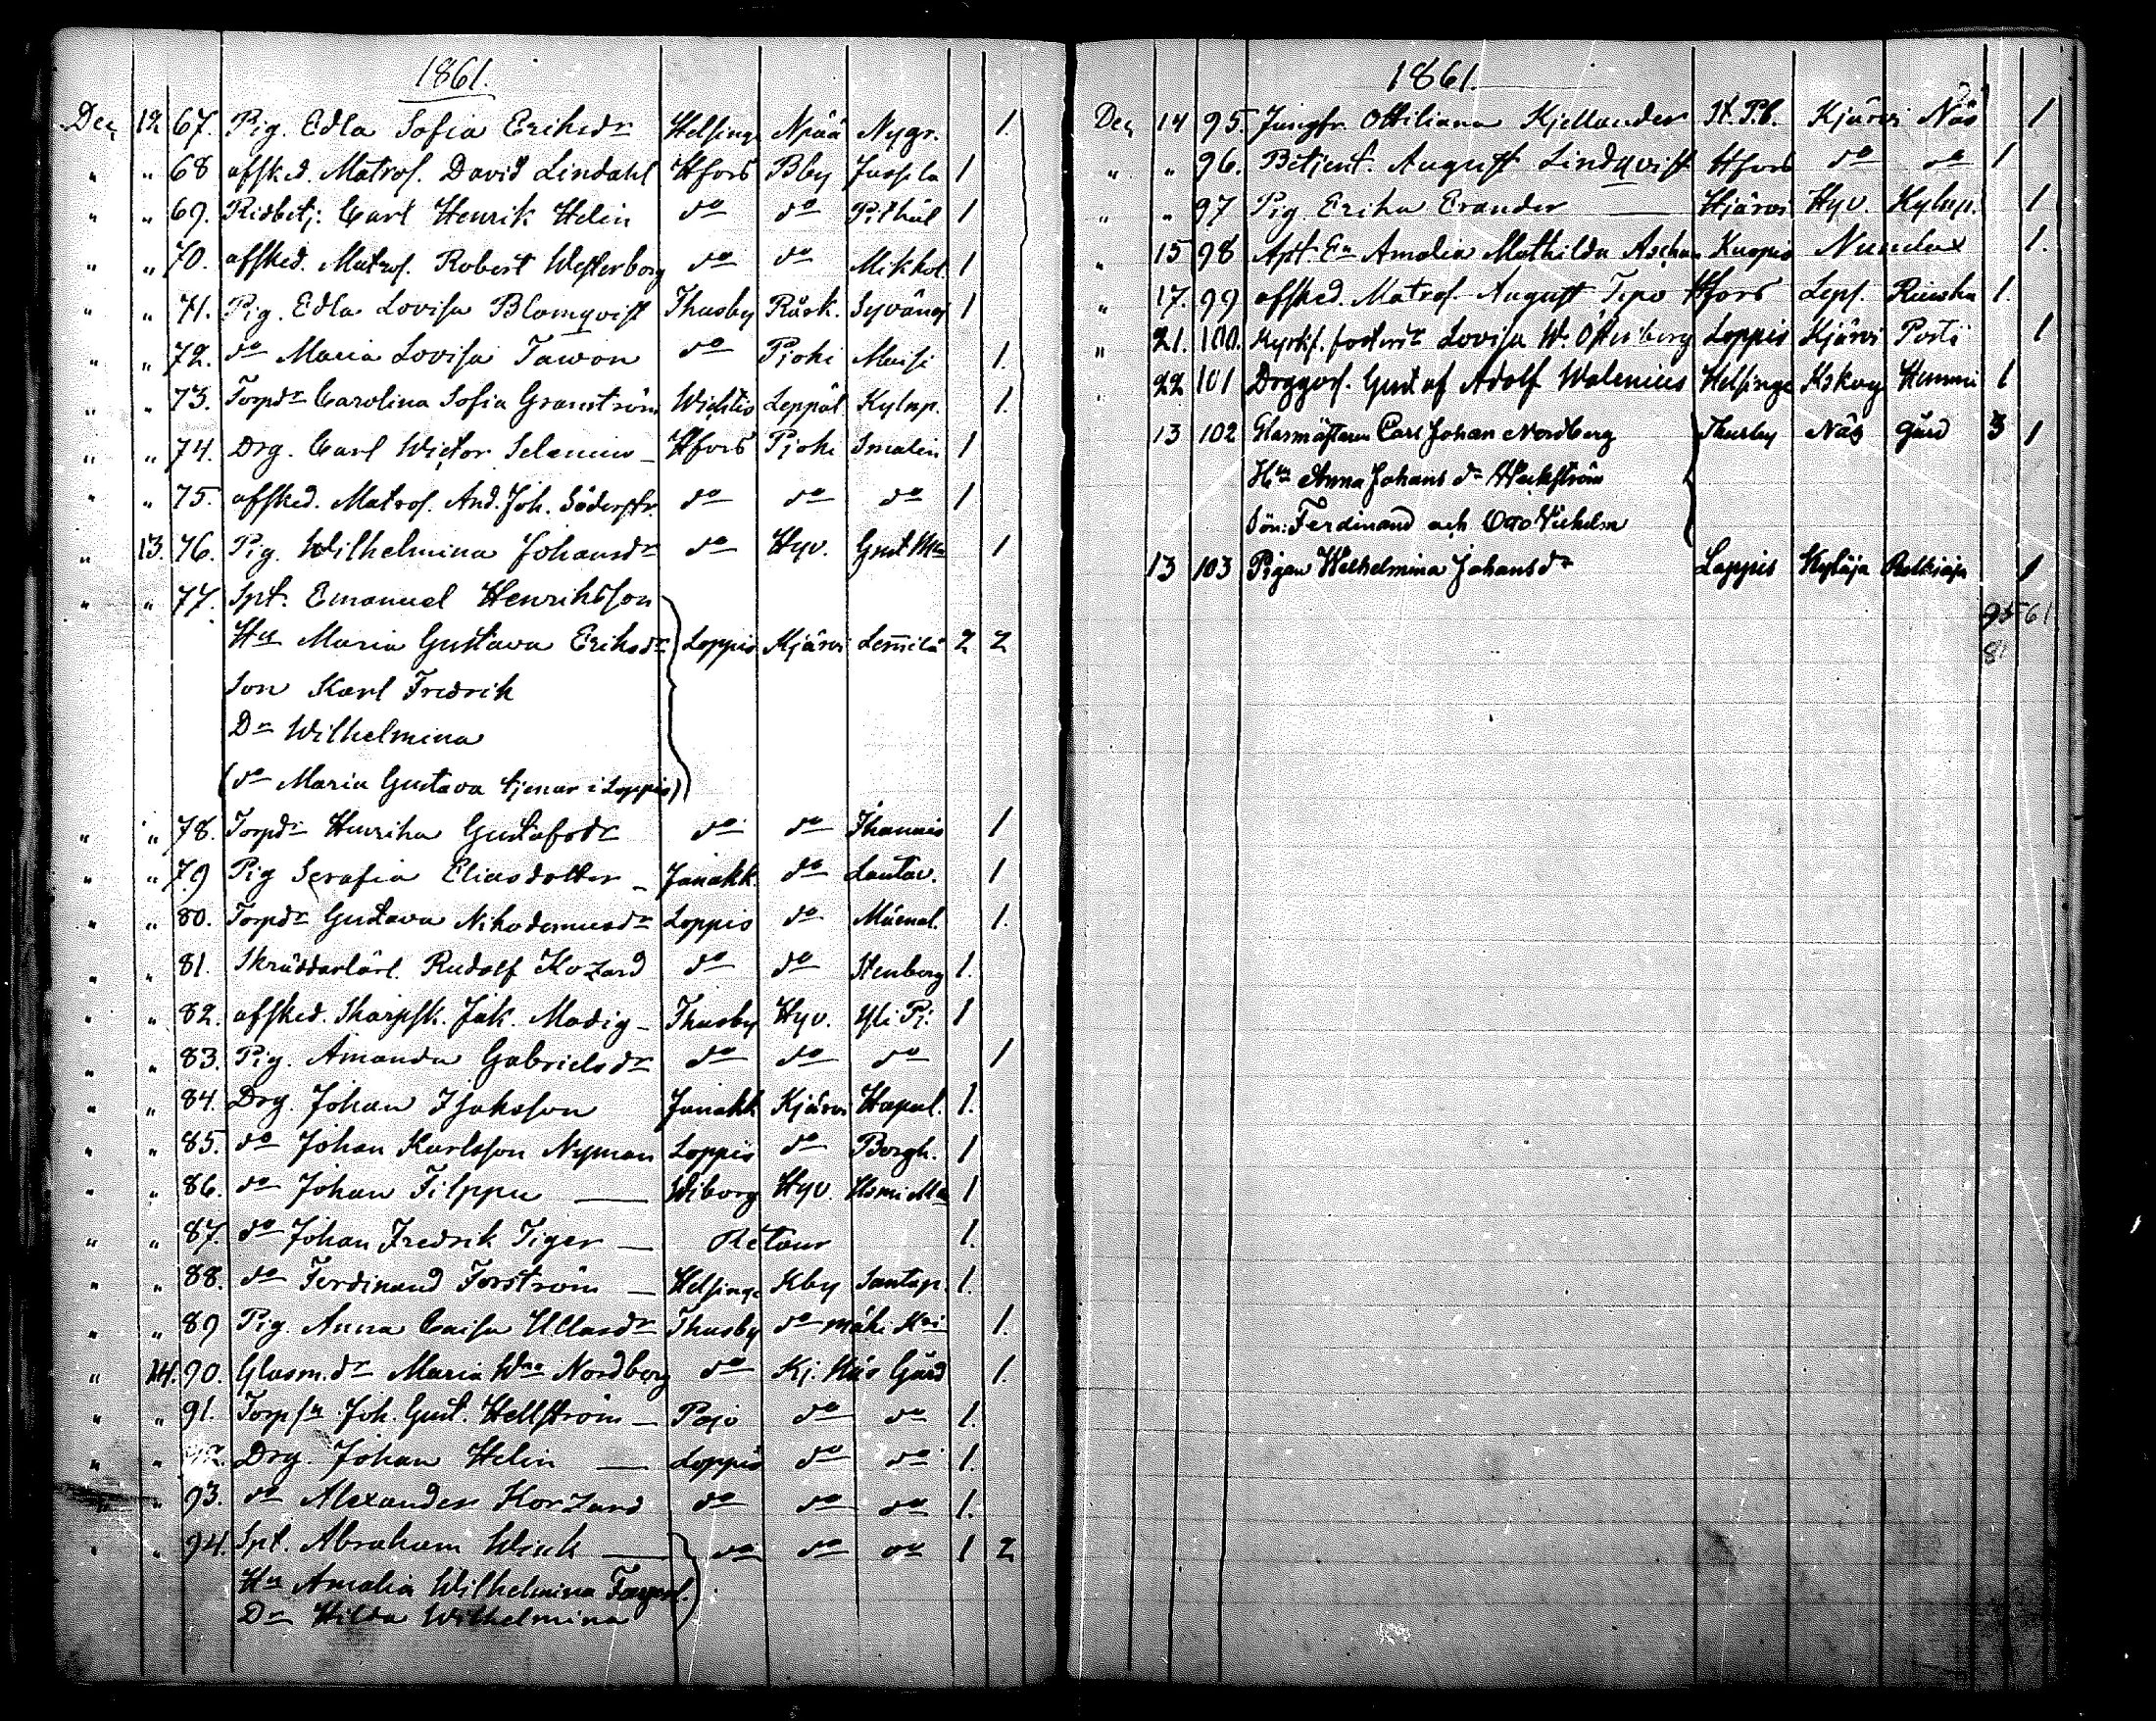 1861.
Dec 12 67. Pig. Edla Sofia Eriksdr Helsinge Npää Nygr. 1.
" " 68 afsked. Matros. David Lindahl Hfors Bby Jussila 1
" " 69. Ridbetj. Carl Henrik Helin do do Pithäl 1
" " 70. afsked. Matros. Robert Westerborg do do Mikkol. 1
" " 71. Pig. Edla Lovisa Blomqvist Thusby Råsk. Syväoj 1
" " 72. do Maria Lovisa Tawon do Pjoki Maisi 1.
" " 73. Torpdr Carolina Sofia Granström Wichtis Leppäl. Kylnp. 1.
" " 74. Drg. Carl Wictor Selenius Hfors Pjoki Smalin 1
" " 75. afsked. Matros. And. Joh. Söderstr. do do do 1
" 13. 76. Pig. Wilhelmina Johansdr do Hyv. 1
" " 77. Spt. Emanuel Henriksson
Hu Maria Gustava Eriksdr Loppis Kjärvi Lemilä 2 2
Son Karl Fredrik
Dr Wilhelmina
(do Maria Gustava tjenar i Loppis)
" " 78. Torpdr Henrika Gustafsdr do do Ihannis 1
" " 79 Pig Serafia Eliasdotter Janakk. do Lautav. 1
" " 80. Torpdr Gustava Nikodemusdr Loppis do Mäenal. 1.
" " 81. Skräddarlärl. Rudolf Kozard do do Stenberg 1.
" " 82. afsked. Skarpsk. Jak. Modig Thusby Hyv. Yli Pi. 1
" " 83. Pig. Amanda Gabrielsdr do do do 1
" " 84. Drg. Johan Isaksson Janakk Kjärvi Hapal. 1.
" " 85. do Johan Karlsson Nyman Loppis do Borgh. 1
" " 86. do Johan Filppu Wiborg Hyv. 1
" " 87. do Johan Fredrik Tiger Retour 1.
" " 88. do Ferdinand Forström Helsinge Kby Santap. 1.
" " 89 Pig. Anna Caisa Ullasdr Thusby do mäki 1.
" 14. 90. Glasm.dr Maria Wna Nordberg do Kj. Näs Gård 1.
" " 91. Torpsn Joh. Gust. Hellström Pojo do do 1.
" " 92. Drg. Johan Helin Loppis do do 1.
" 93. do Alexander Korzard do do do 1.
" " 94. Spt. Abraham Wick do do do 1 2
Hu Amalia Wilhelmina
Dr Hilda Wilhelmina
1861.
Dec 14 95. Jungfr. Ottiliana Kjellander St. P.b. Kjärvi Näs 1
" " 96. Betjent. August Lindqvist Hfors do do 1
" " 97 Pig. Erika Erander Kjärvi Hyv. Kylnp. 1
" 15 98 Apt. En Amalia Mathilda Aschan Kuopio Numlax 1.
" 17. 99 afsked. Matros. August Tipo Hfors Leps. 1.
" 21. 100. Kyrks. fosterdr Lovisa W. Öfterberg Loppis Kjärvi Posti 1
" 22 101 Drggoss. Gustaf Adolf Walenius Helsinge Kskog Hemmi 1
13 102 Glasmästaren Carl Johan Nordberg Thusby Näs gård 3 1
Hu Anna Johansdr Weckström
Sön: Ferdinand och Otto Vilhelm
13 103 Pigan Wilhelmina Johansdr Loppis Kyläja 1
95 61
81